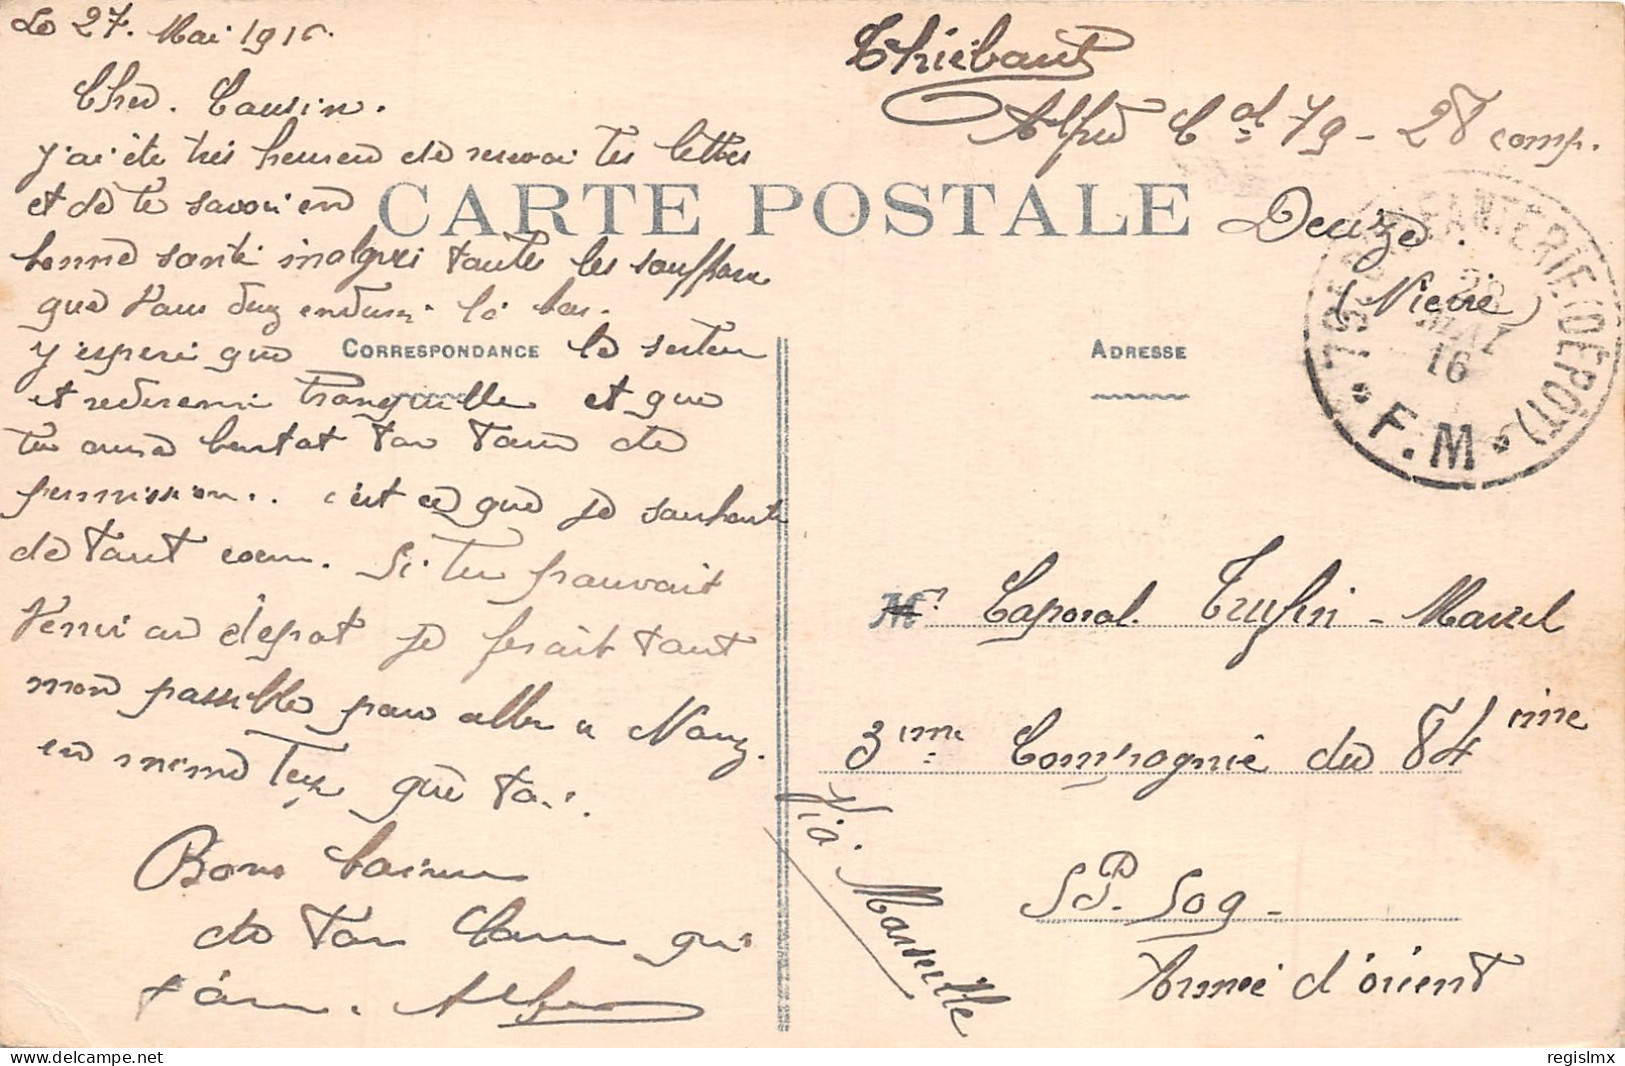 Le 27. Mai 1916.
Cher. Cousin.
j'ai éte tres heureu de recevoi tes lettres
et de te savoir en
bonne santé malgrés toutes les souffrance
que vous duz enduré là bas.
j'esperé que le secteur
et redevenu tranquille et que
tu aura bentot ton tour de
permission.. c'est ce que je souhaite
de tout cœur. Si tu pouvait
venir au depot je ferait tout
mon possible pour aller a Nanz.
en meme temp que toi.
Bons baisers
de ton Cousin qui
t'aime. Alfred
CARTE POSTALE
CORRESPONDANCE
ADRESSE
Thiébaut
Alfred Cal 79 - 28 comp.
Decize.
(Nievre)
79E REGt D'INFANTERIE (DÉPÔT)
28
MAI
16
* F.M *
Mr. Caporal Trufin - Marcel
3ime Compagnie du 84ime
SP. 509 -
Armée d'orient
Via. Marseille
regislmx